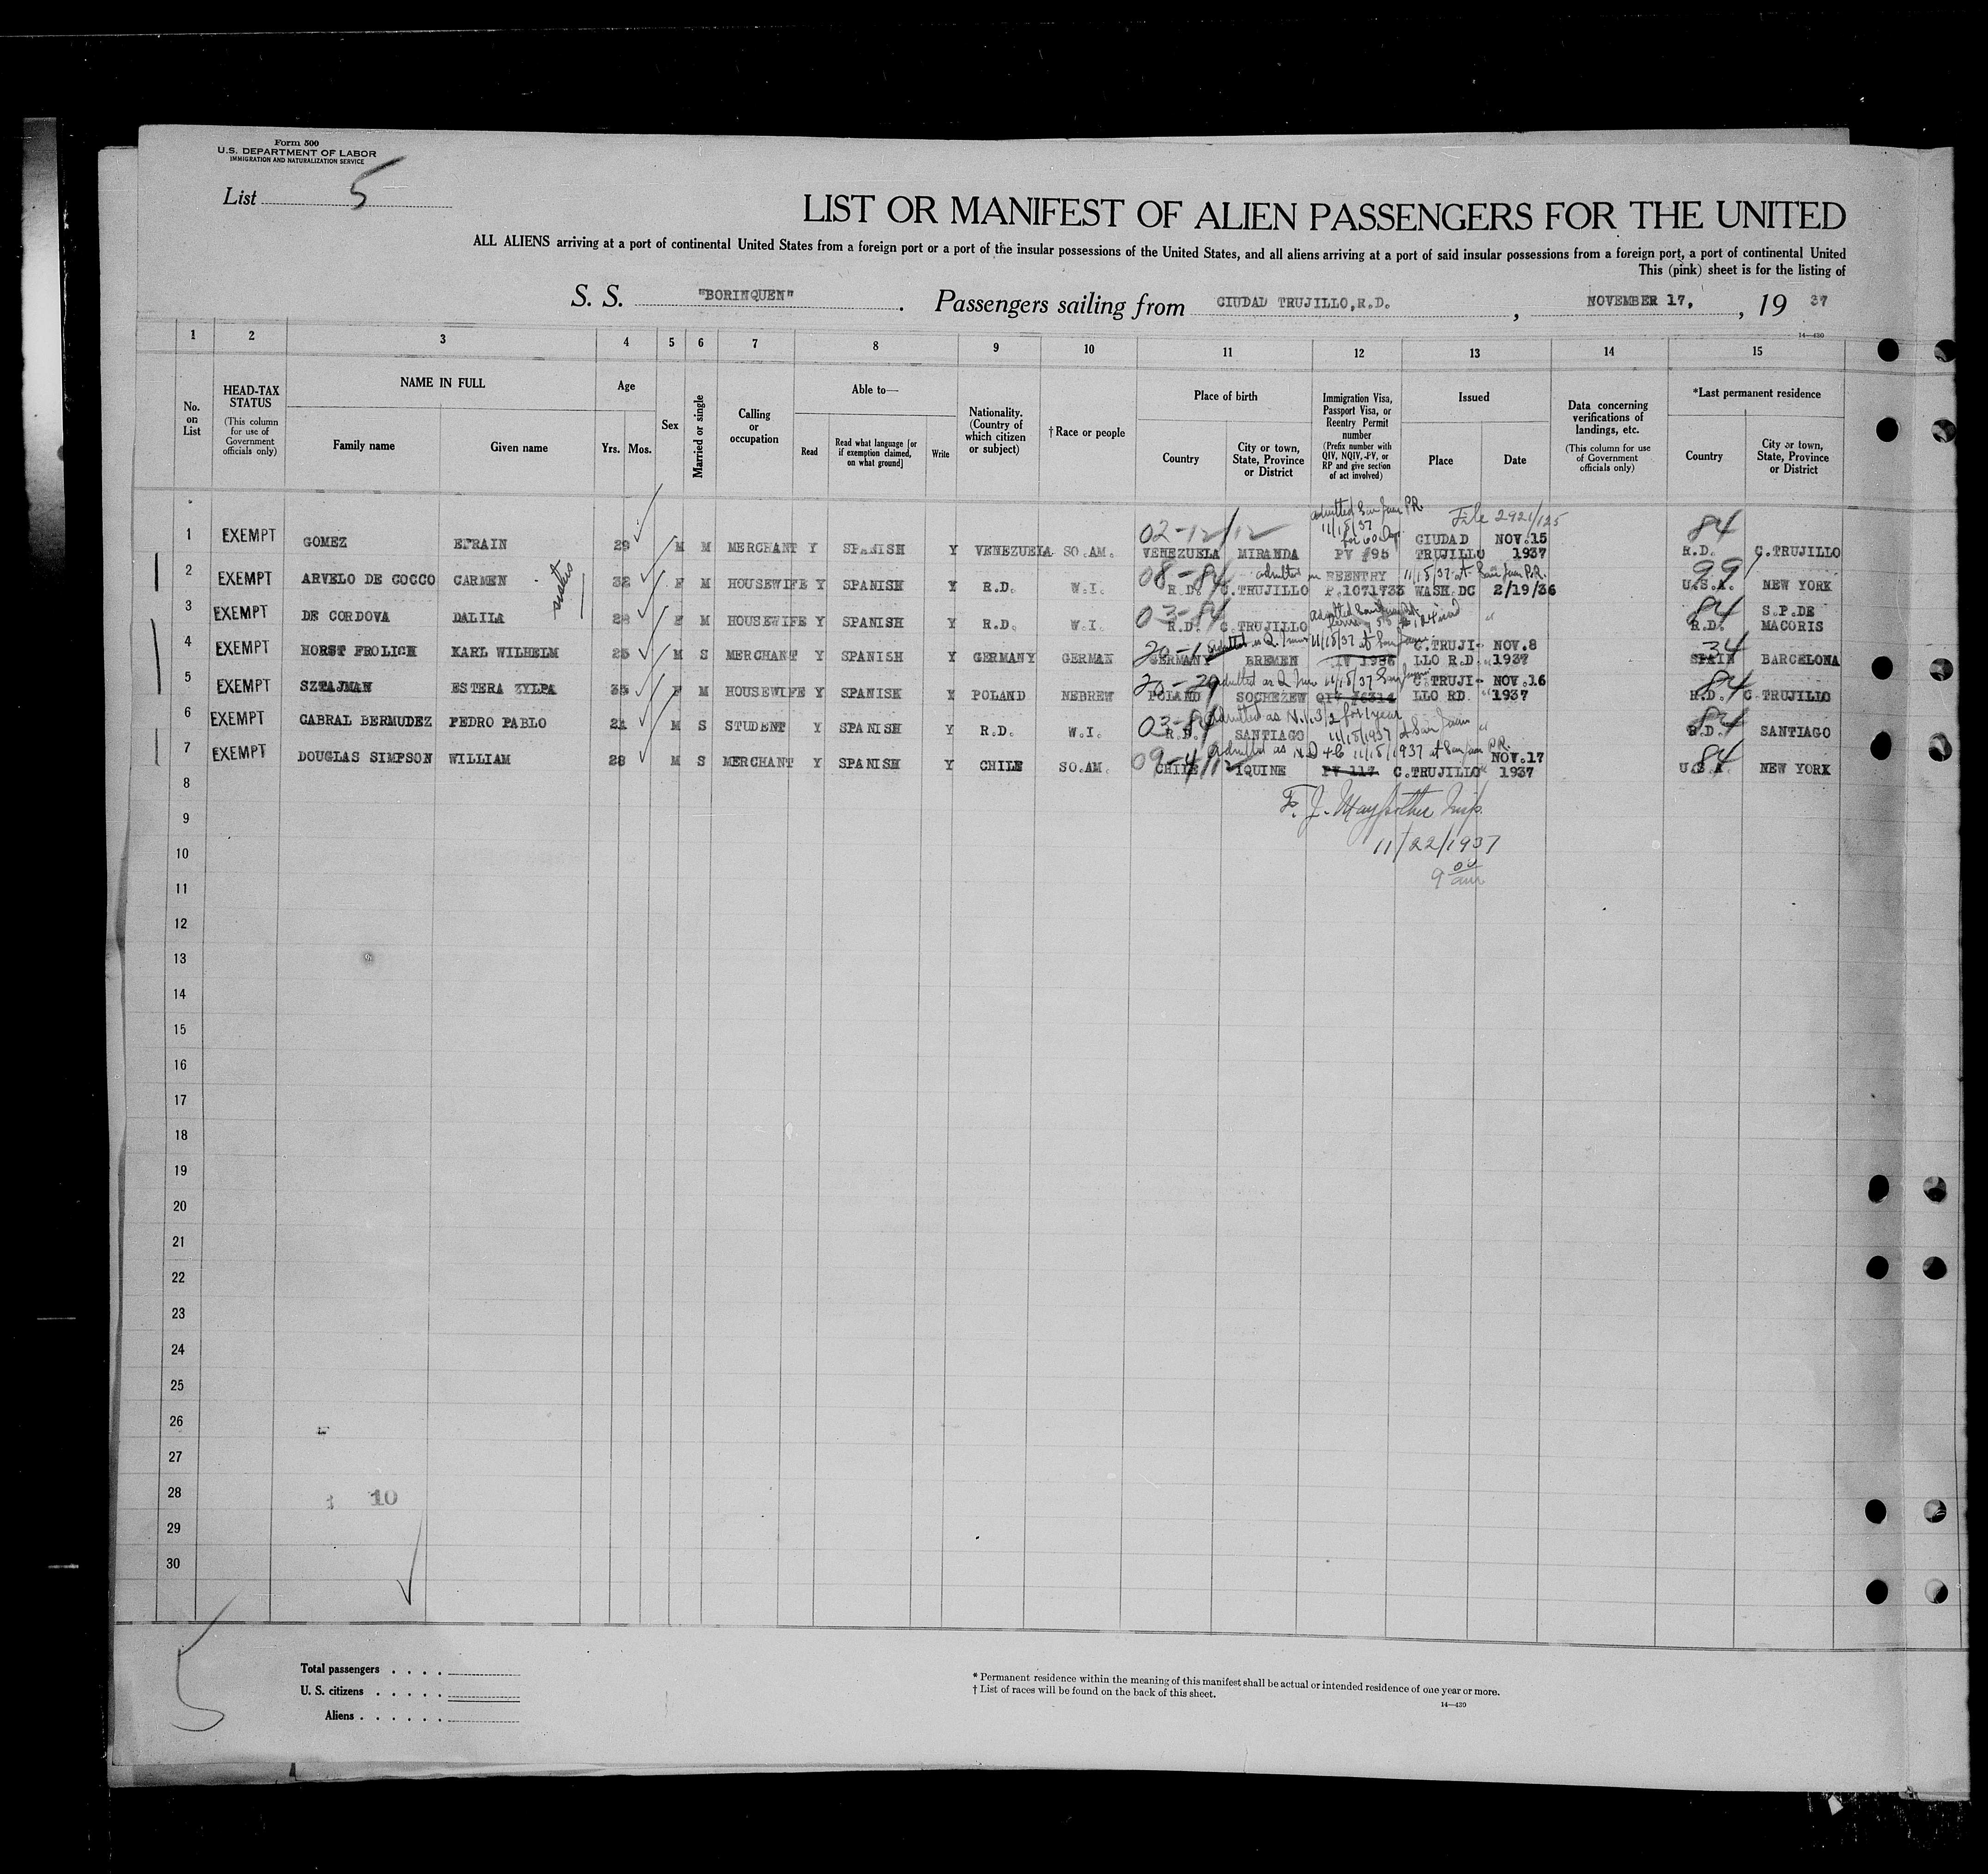 Form 500
U.S. DEPARTMENT OF LABOR
IMMIGRATION AND NATURALIZATION SERVICE
List 5
LIST OR MANIFEST OF ALIEN PASSENGERS FOR THE UNITED
ALL ALIENS arriving at a port of continental United States from a foreign port or a port of the insular possessions of the United States, and all aliens arriving at a port of said insular possessions from a foreign port, a port of continental United
This (pink) sheet is for the listing of
S. S. "BORINQUEN". Passengers sailing from CIUDAD TRUJILLO,R.D., NOVEMBER 17, , 19 37
14—430
1 2 3 4 5 6 7 8 9 10 11 12 13 14 15
No. on List
HEAD-TAX STATUS
(This column for use of Government officials only)
NAME IN FULL
Family name Given name
Age
Yrs. Mos.
Sex
Married or single
Calling or occupation
Able to—
Read
Read what language [or if exemption claimed, on what ground]
Write
Nationality. (Country of which citizen or subject)
† Race or people
Place of birth
Country
City or town, State, Province or District
Immigration Visa, Passport Visa, or Reentry Permit number
(Prefix number with QIV, NQIV, PV, or RP and give section of act involved)
Issued
Place Date
Data concerning verifications of landings, etc.
(This column for use of Government officials only)
*Last permanent residence
Country
City or town, State, Province or District
admitted San Juan P.R. 11/18/37 for 60 Days
File 2921/125
02-12/12 84
1 EXEMPT GOMEZ EFRAIN 29 M M MERCHANT Y SPANISH Y VENEZUELA SO.AM. VENEZUELA MIRANDA PV #95 CIUDAD TRUJILLO NOV.15 1937 R.D. C.TRUJILLO
sisters
08-84 admitted on 11/18/37 at San Juan P.R. 99
2 EXEMPT ARVELO DE COCCO CARMEN 32 F M HOUSEWIFE Y SPANISH Y R.D. W.I. R.D. C.TRUJILLO REENTRY P.1071733 WASH DC 2/19/36 U.S.A. NEW YORK
03-84 84
3 EXEMPT DE CORDOVA DALILA 28 F M HOUSEWIFE Y SPANISH Y R.D. W.I. R.D. C.TRUJILLO " R.D. S.P.DE MACORIS
admitted as Q. Imm 11/18/37 at San Juan 34
4 EXEMPT HORST FROLICH KARL WILHELM 25 M S MERCHANT Y SPANISH Y GERMANY GERMAN GERMANY BREMEN C.TRUJILLO R.D. NOV.8 1937 SPAIN BARCELONA
20-29 admitted as Q Imm 11/18/37 San Juan 84
5 EXEMPT SZTAJMAN ESTERA ZYLPA 35 F M HOUSEWIFE Y SPANISH Y POLAND HEBREW POLAND SOCHEZEW C.TRUJILLO RD. NOV.16 1937 R.D. C TRUJILLO
03-84 admitted as N.I. 3/2 for 1 year 11/18/1937 at San Juan 84
6 EXEMPT CABRAL BERMUDEZ PEDRO PABLO 21 M S STUDENT Y SPANISH Y R.D. W.I. R.D. SANTIAGO " R.D. SANTIAGO
admitted as 11/18/1937 at San Juan P.R. 84
7 EXEMPT DOUGLAS SIMPSON WILLIAM 28 M S MERCHANT Y SPANISH Y CHILE SO.AM. CHILE IQUINE PV 117 C.TRUJILLO NOV.17 1937 U.S.A. NEW YORK
8
9
11/22/1937
10
9 00 am
11
12
13
14
15
16
17
18
19
20
21
22
23
24
25
26
27
28 10
29
30
5
Total passengers . . . .
U. S. citizens . . . . .
Aliens . . . . . .
* Permanent residence within the meaning of this manifest shall be actual or intended residence of one year or more.
† List of races will be found on the back of this sheet.
14—430